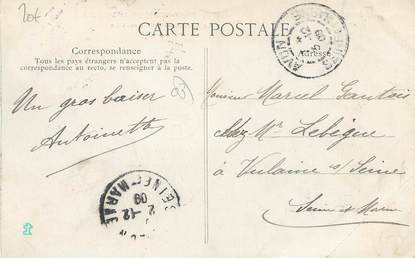 20f
CARTE POSTALE
Correspondance
Tous les pays étrangers n'acceptent pas la
correspondance au recto, se renseigner à la poste.
Adresse
Un gros baiser
Antoinette
Monsieur Marcel Gautois
chez Mr Lebègue
à Vulaines s/ Seine
Seine et Marne
SEINE-ET-MARNE
2-12
09